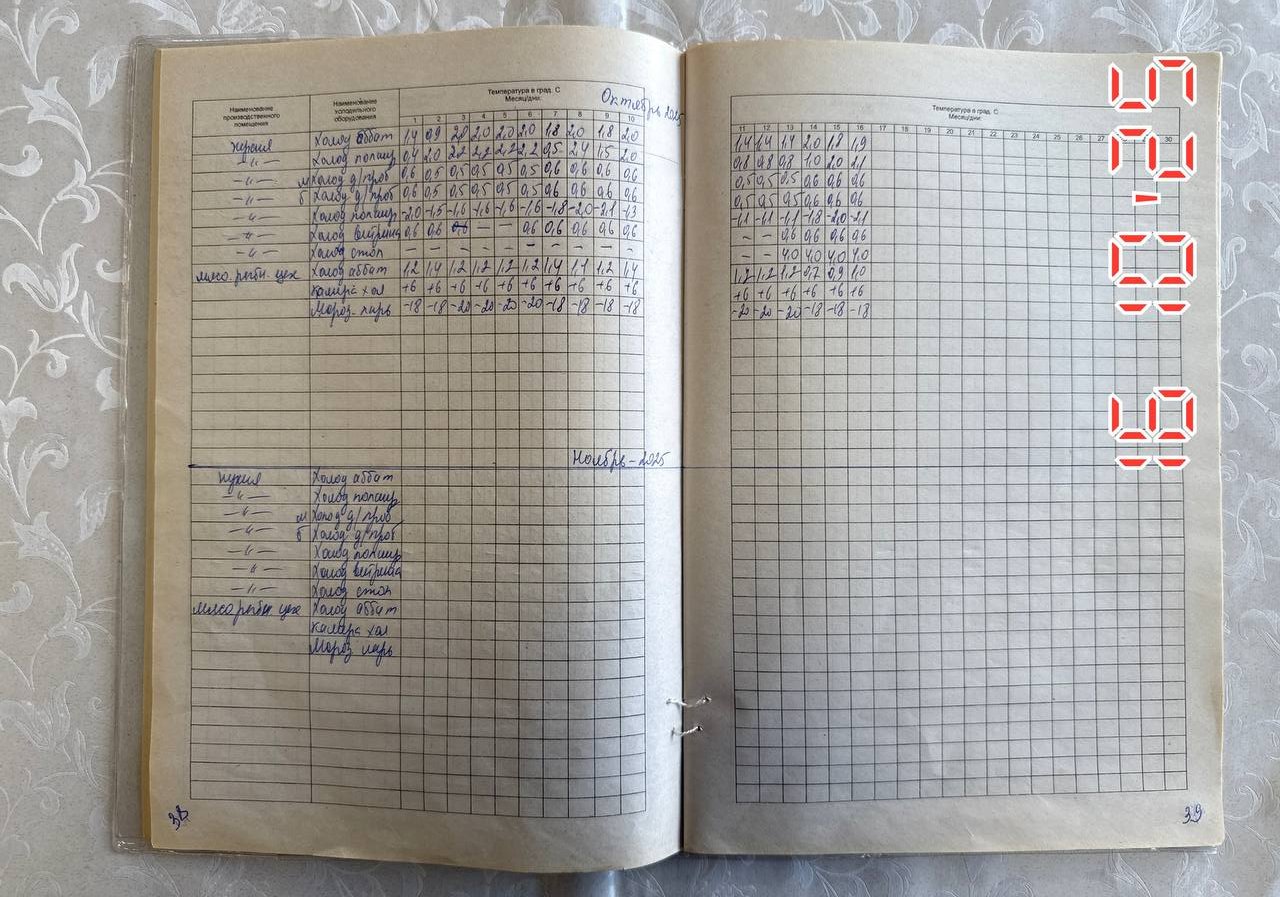 Наименование производственного помещения
Наименование холодильного оборудования
Температура в град. С
Месяц/дни:
Октябрь 2025
1 2 3 4 5 6 7 8 9 10
кухня Холод аббат 1,4 0,9 2,0 2,0 2,0 2,0 1,8 2,0 1,8 2,0
–"– Холод полаир 0,4 2,0 2,2 2,2 2,2 2,2 0,5 2,4 1,5 2,0
–"– м Холод д/проб 0,6 0,5 0,5 0,5 0,5 0,5 0,6 0,6 0,6 0,6
–"– б Холод д/проб 0,6 0,5 0,5 0,5 0,5 0,5 0,6 0,6 0,6 0,6
–"– Холод полаир -2,0 -1,5 -1,6 -1,6 -1,6 -1,6 -1,8 -2,0 -2,1 -1,3
–"– Холод витрина 0,6 0,6 – – 0,6 0,6 0,6 0,6 0,6
–"– Холод стол – – – – – – – – – –
мясо. рыбн. цех Холод аббат 1,2 1,4 1,2 1,2 1,2 1,2 1,4 1,1 1,2 1,4
Камера хол +6 +6 +6 +6 +6 +6 +6 +6 +6 +6
Мороз. ларь -18 -18 -20 -20 -20 -20 -18 -18 -18 -18
Ноябрь – 2025
кухня Холод аббат
–"– Холод полаир
–"– м Холод д/проб
–"– б Холод д/проб
–"– Холод полаир
–"– Холод витрина
–"– Холод стол
мясо рыбн цех Холод аббат
Камера хол
Мороз ларь
38
Температура в град. С
Месяц/дни:
11 12 13 14 15 16 17 18 19 20 21 22 23 24 25 26 27 28 29 30
1,4 1,4 1,4 2,0 1,8 1,9
0,8 0,8 0,8 1,0 2,0 2,1
0,5 0,5 0,5 0,6 0,6 0,6
0,5 0,5 0,5 0,6 0,6 0,6
-1,1 -1,1 -1,1 -1,8 -2,0 -2,1
– – 0,6 0,6 0,6 0,6
– – 4,0 4,0 4,0 4,0
1,2 1,2 1,2 0,7 0,9 1,0
+6 +6 +6 +6 +6 +6
-20 -20 -20 -18 -18 -18
39
16 10 '25